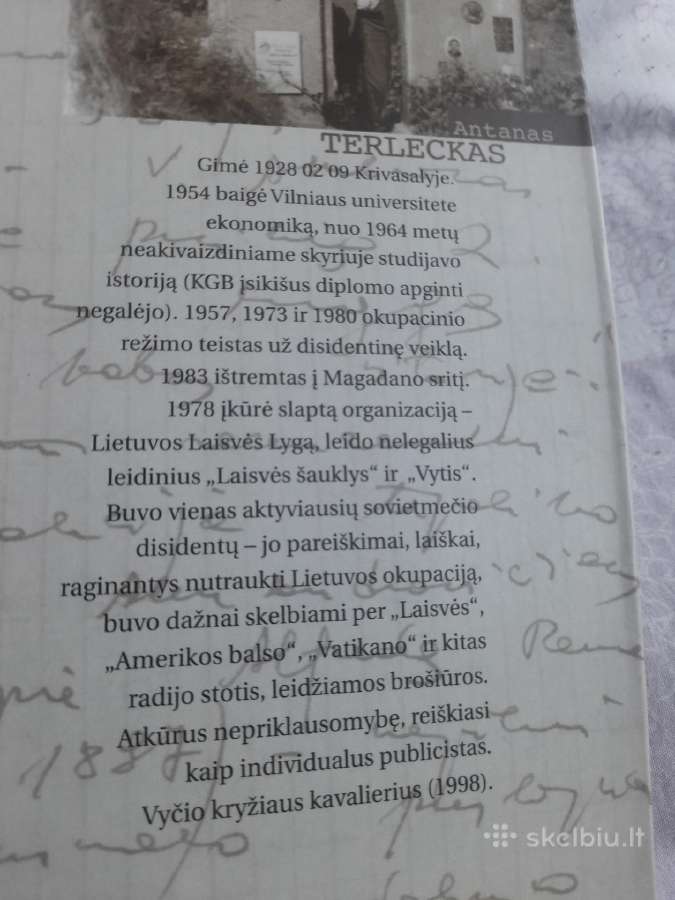 Antanas
TERLECKAS
Gimė 1928 02 09 Krivasalyje.
1954 baigė Vilniaus universitete
ekonomiką, nuo 1964 metų
neakivaizdiniame skyriuje studijavo
istoriją (KGB įsikišus diplomo apginti
negalėjo). 1957, 1973 ir 1980 okupacinio
režimo teistas už disidentinę veiklą.
1983 ištremtas į Magadano sritį.
1978 įkūrė slaptą organizaciją –
Lietuvos Laisvės Lygą, leido nelegalius
leidinius „Laisvės šauklys“ ir „Vytis“.
Buvo vienas aktyviausių sovietmečio
disidentų – jo pareiškimai, laiškai,
raginantys nutraukti Lietuvos okupaciją,
buvo dažnai skelbiami per „Laisvės“,
„Amerikos balso“, „Vatikano“ ir kitas
radijo stotis, leidžiamos brošiūros.
Atkūrus nepriklausomybę, reiškiasi
kaip individualus publicistas.
Vyčio kryžiaus kavalierius (1998).
skelbiu.lt